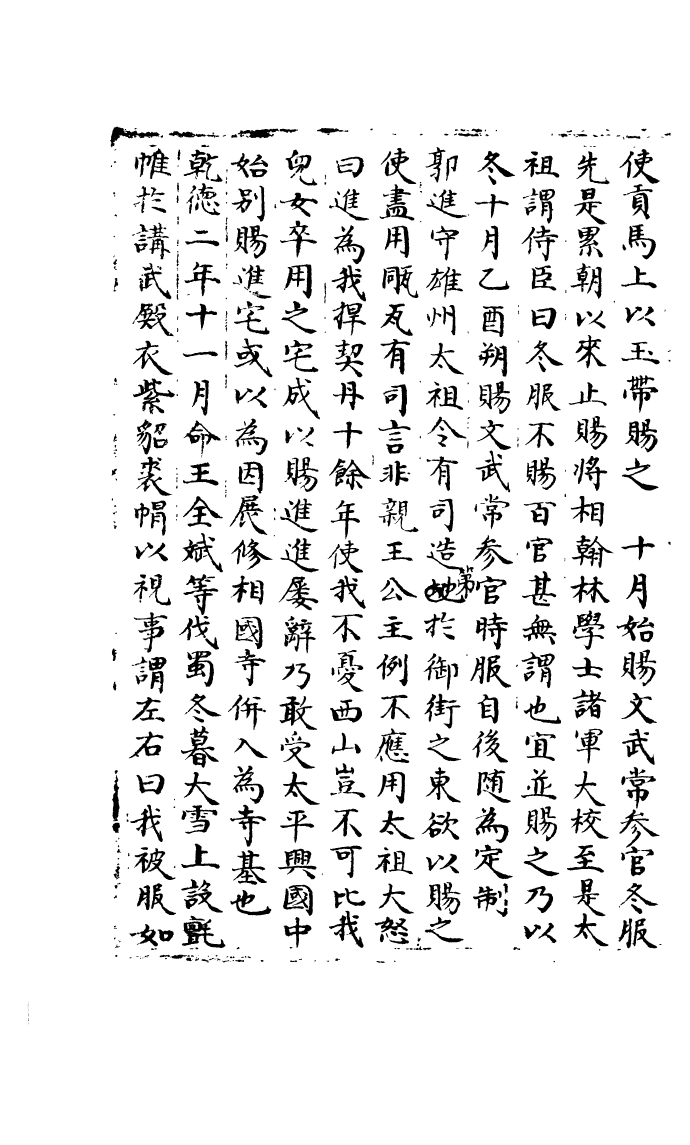 使貢馬上以玉帶賜之　十月始賜文武常参官冬服
先是累朝以來止賜将相翰林學士諸軍大校至是太
祖謂侍臣曰冬服不賜百官甚無謂也宜並賜之乃以
冬十月乙酉朔賜文武常参官時服自後随為定制
郭進守雄州太祖令有司造第於御街之東欲以賜之
使盡用㼧瓦有司言非親王公主例不應用太祖大怒
曰進為我捍契丹十餘年使我不憂西山豈不可比我
兒女卒用之宅成以賜進進屡辭乃敢受太平興國中
始别賜進宅或以為因展修相國寺併入為寺基也
乾德二年十一月命王全斌等伐蜀冬暮大雪上設氊
帷於講武殿衣紫貂裘帽以視事謂左右曰我被服如